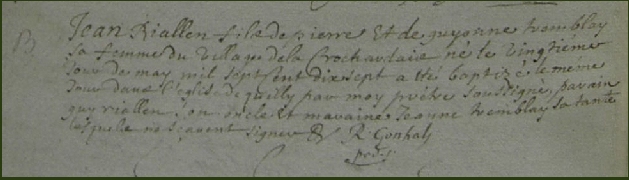 B Jean Riallen fils de pierre Et de guyonne tremblay
sa femme du village de la Crochardaie né le vingtiéme
Jour de may mil sept cent dix sept a été baptizé le méme
Jour dans l'eglise de quilly par moy prétre soussigné, parain
guy riallen son oncle et maraine Jeanne tremblay sa tante
lesquelle ne sçavent signer &